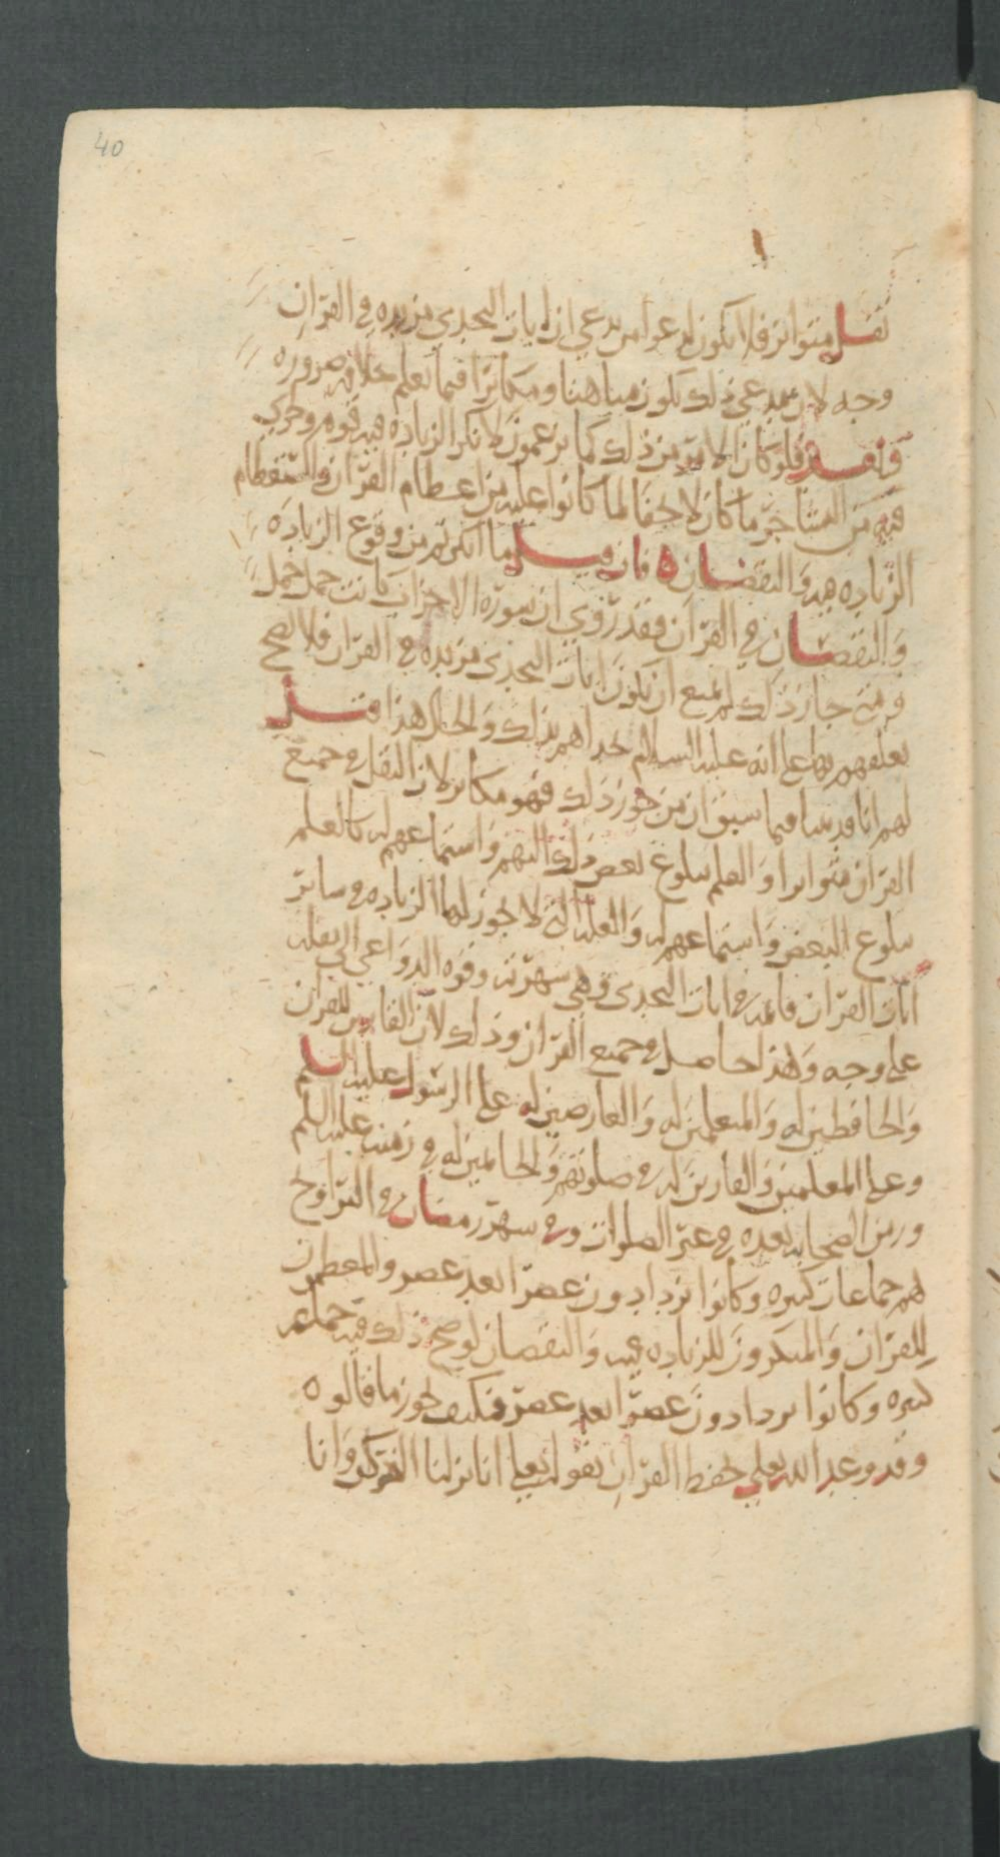 40
نقل متواتر فلا يكون لدعوا من يدعي ان ايات التحدي مزيده في القران
وجه لان مدعي ذلك يكون مباهتا ومكابرا فيما نعلم خلافه ضروره
وبعد فلو كان الامر من ذلك كما يزعمون لانكر الزياده فيه قوم وجرى
فيه من التشاجر ما كان لا يخفا لما كانوا عليه من اعظام القران واستعظام
الزياده فيه والنقصان ٥ فان قيل ما انكرتم من وقوع الزياده
والنقصان في القران فقد روي ان سوره الاحزاب كانت حمل جمل
ومتى جاز ذلك لم يمتنع ان يكون ايات التحدي مزيده في القران فلا يصح
تعلقهم بها على انه عليه السلام تحداهم بذلك والحال هذا قيل
لهم انا قد بينا فيما سبق ان من جوز ذلك فهو مكابر لان النقل في جميع
القران متواترا والعلم ببلوغ بعض ذلك اليهم واستماعهم له كالعلم
ببلوغ البعض واستماعهم له والعله التي لا يجوز لها الزياده في سائر
ايات القران قائمه في ايات التحدي وهي شهرته وقوه الدواعي الى نقله
على وجه ولهذا حاصل في جميع القران وذلك لان القارين للقران
والحافظين له والمتعلمين له والعارضين له على الرسول عليه السلم
وعلى المعلمين والقارين له في صلوتهم والحاملين له في زمنه عليه السلم
وزمن الصحابه بعده في غير الصلوات وفي شهر رمضان في التراويح
لهم جماعات كثيره وكانوا يزدادون عصرا بعد عصر والمعظمون
للقران والمنكرون للزياده فيه والنقصان لو صح ذلك فيه جماعه
كثيره وكانوا يزدادون عصرا بعد عصر فكيف يجوز ما قالوه
وقد وعد الله تعالى بحفظ القران بقوله تعالى انا نزلنا الذكر وانا